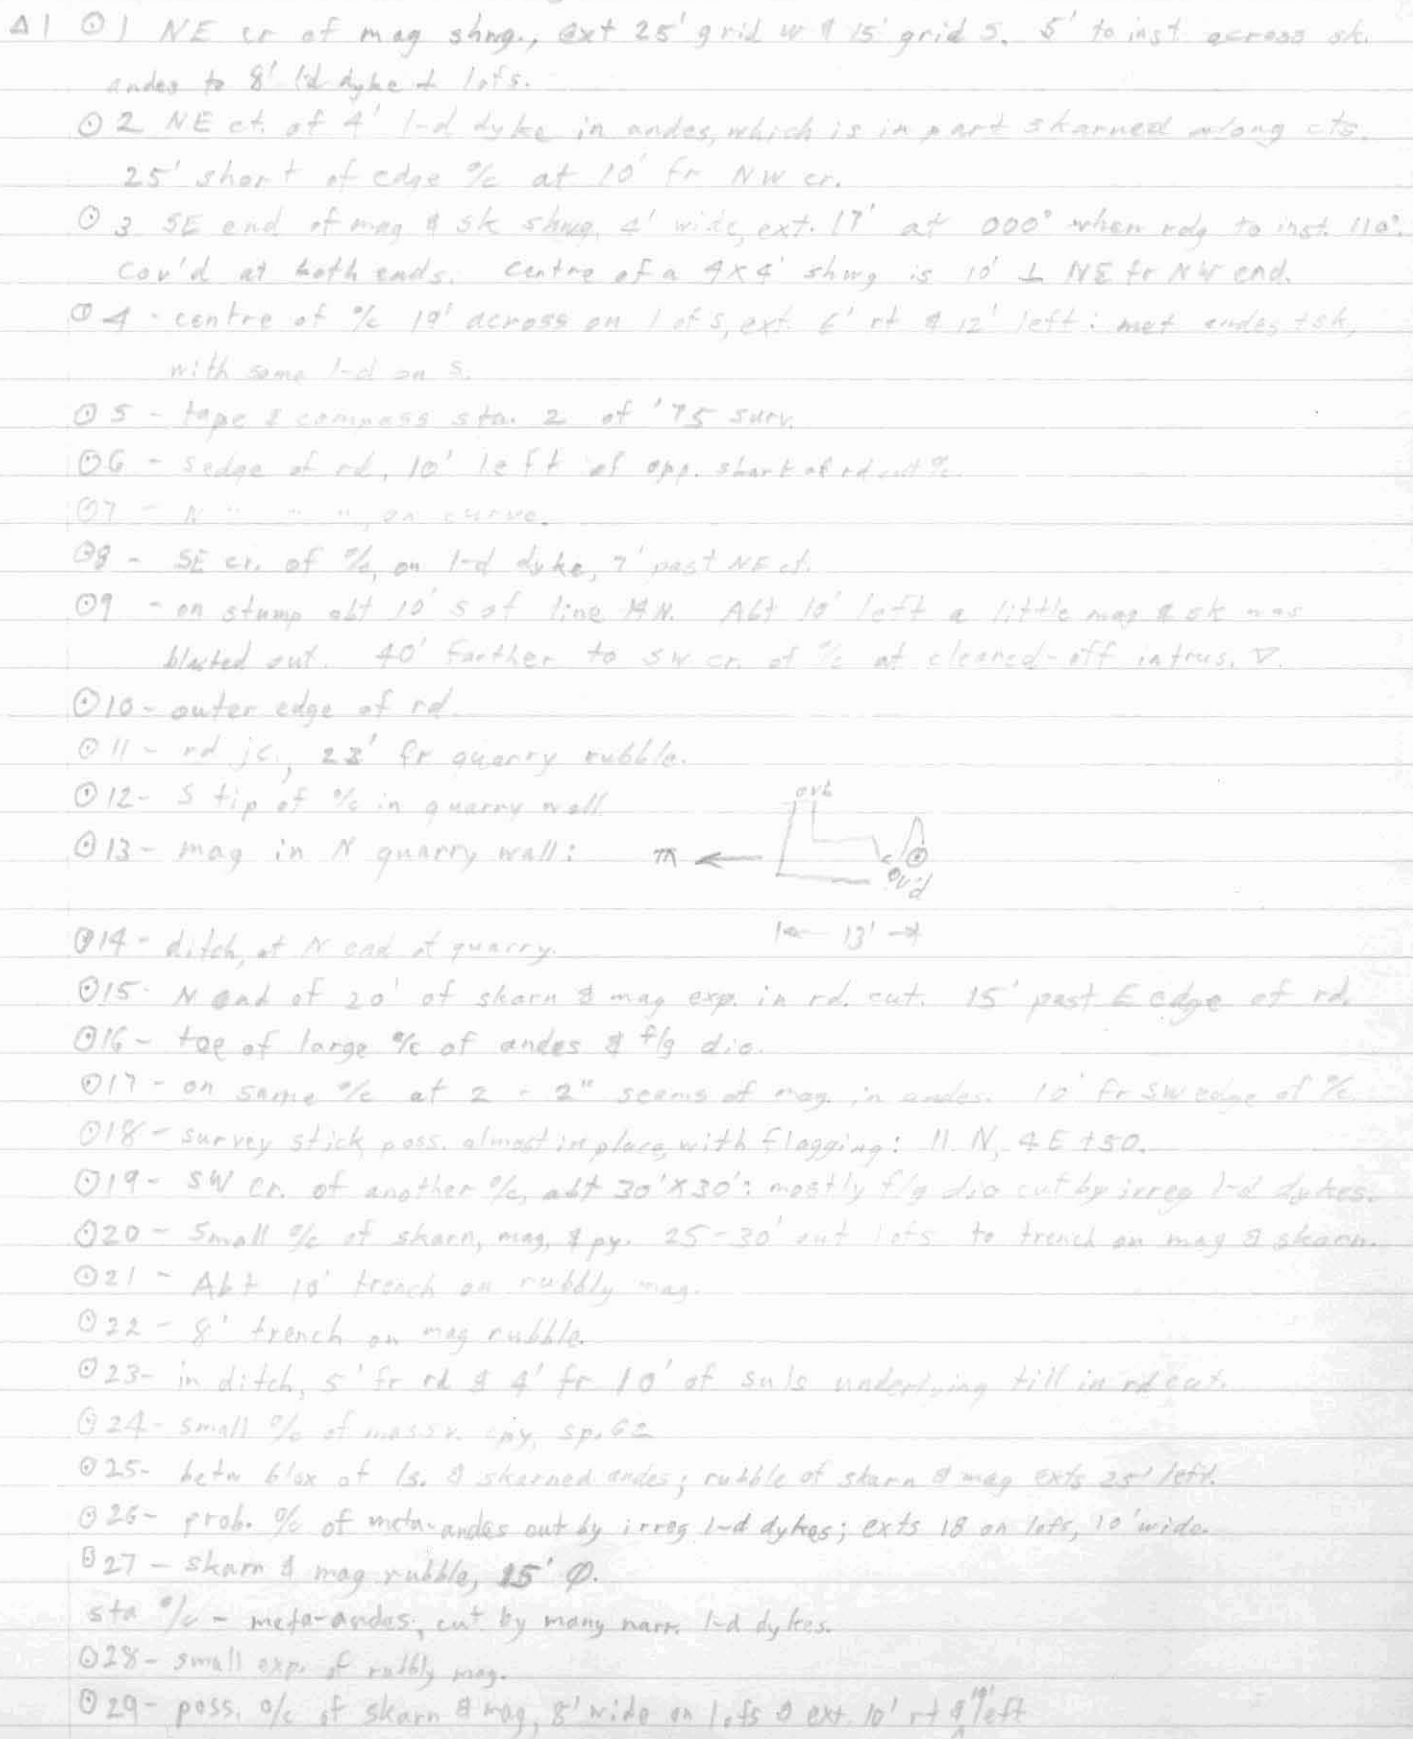 Δ1 ⊙1 NE cr of mag shwg., ext 25' grid w & 15' grid S. 5' to inst across sk.
andes to 8' l-d dyke + lofs.
⊙2 NE ct. of 4' l-d dyke in andes, which is in part skarned along cts.
25' short of edge o/c at 10' fr NW cr.
⊙3 SE end of mag & sk shwg, 4' wide, ext. 17' at 000° when rdg to inst. 110°.
Cov'd at both ends. Centre of a 4×4' shwg is 10' ⊥ NE fr NW end.
⊙4 - centre of o/c 19' across on lofs, ext. 6' rt & 12' left: met andes + sk,
with some l-d on S.
⊙5 - tape & compass sta. 2 of '75 surv.
⊙6 - S edge of rd, 10' left of opp. start of rd cut o/c.
⊙7 - N " " ", on curve.
⊙8 - SE cr. of o/c, on l-d dyke, 7' past NE ct.
⊙9 - on stump abt 10' S of line N. Abt 10' left a little mag & sk was
blasted out. 40' farther to SW cr. of o/c at cleaned-off intrus. ▽.
⊙10 - outer edge of rd.
⊙11 - rd jc., 23' fr quarry rubble.
⊙12 - S tip of o/c in quarry wall
ovb
⊙13 - mag in N quarry wall: ←
cov'd
⊙14 - ditch, at N end of quarry. |← 13' →|
⊙15 - N end of 20' of skarn & mag exp. in rd. cut. 15' past E edge of rd.
⊙16 - toe of large o/c of andes & f/g dio.
⊙17 - on same o/c at 2 - 2" seams of mag. in andes. 10' fr SW edge of o/c.
⊙18 - survey stick, poss. almost in place, with flagging: 11 N, 4E +50.
⊙19 - SW cr. of another o/c, abt 30'×30': mostly f/g dio cut by irreg l-d dykes.
⊙20 - Small o/c of skarn, mag, & py. 25-30' out lofs to trench on mag & skarn.
⊙21 - Abt 10' trench on rubbly mag.
⊙22 - 8' trench on mag rubble.
⊙23 - in ditch, 5' fr rd & 4' fr 10' of suls underlying till in rd cut.
⊙24 - small o/c of massv. cpy, sp. 62
⊙25 - betw blox of ls. & skarned andes; rubble of skarn & mag exts 25' left.
⊙26 - prob. o/c of meta-andes cut by irreg l-d dykes; exts 18 on lofs, 10' wide.
⊙27 - skarn & mag rubble, 15' Φ.
sta o/c - meta-andes, cut by many narr. l-d dykes.
⊙28 - small exp. of rubbly mag.
⊙29 - poss. o/c of skarn & mag, 8' wide on lofs & ext. 10' rt & left